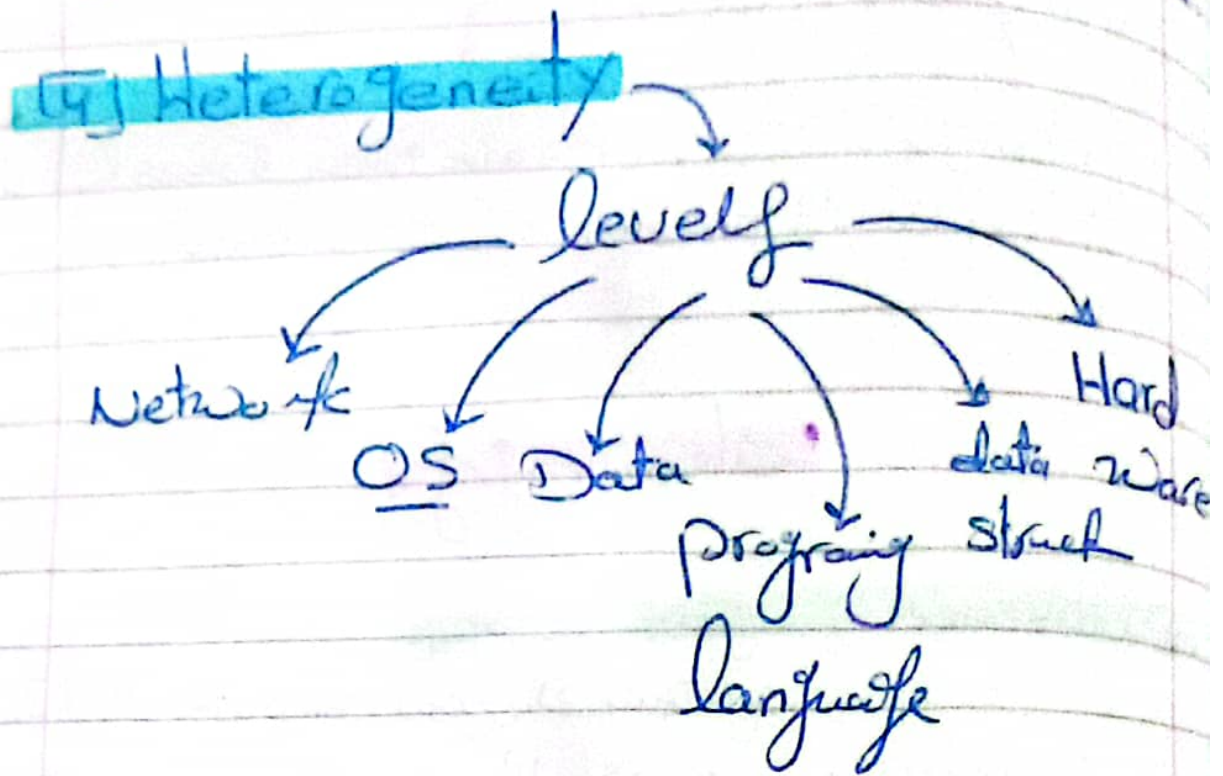 [4] Heterogeneity
levels
Network
OS
Data
prograing
language
data
struct
Hard
Ware